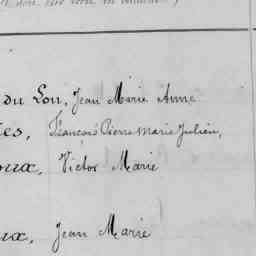 du Lou, Jean Marie Anne
es, François Pierre Marie Julien,
oux, Victor Marie
ux, Jean Marie